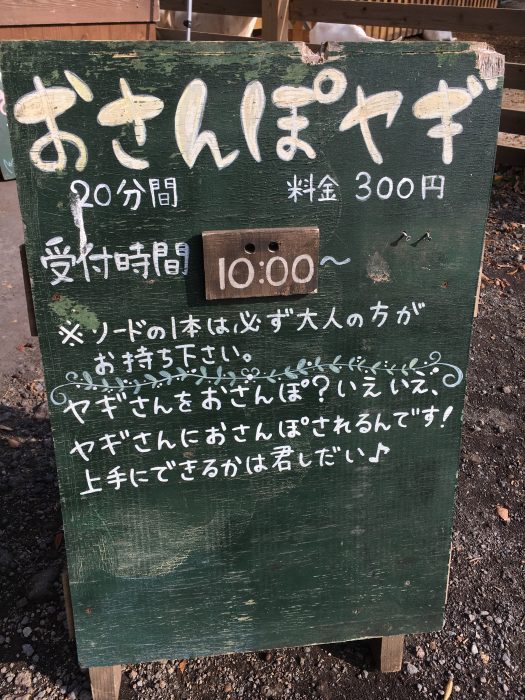 おさんぽヤギ
20分間 料金 300円
受付時間 10:00～
※ ソードの1本は必ず大人の方が
お持ち下さい。
ヤギさんをおさんぽ?いえいえ、
ヤギさんにおさんぽされるんです!
上手にできるかは君しだい♪